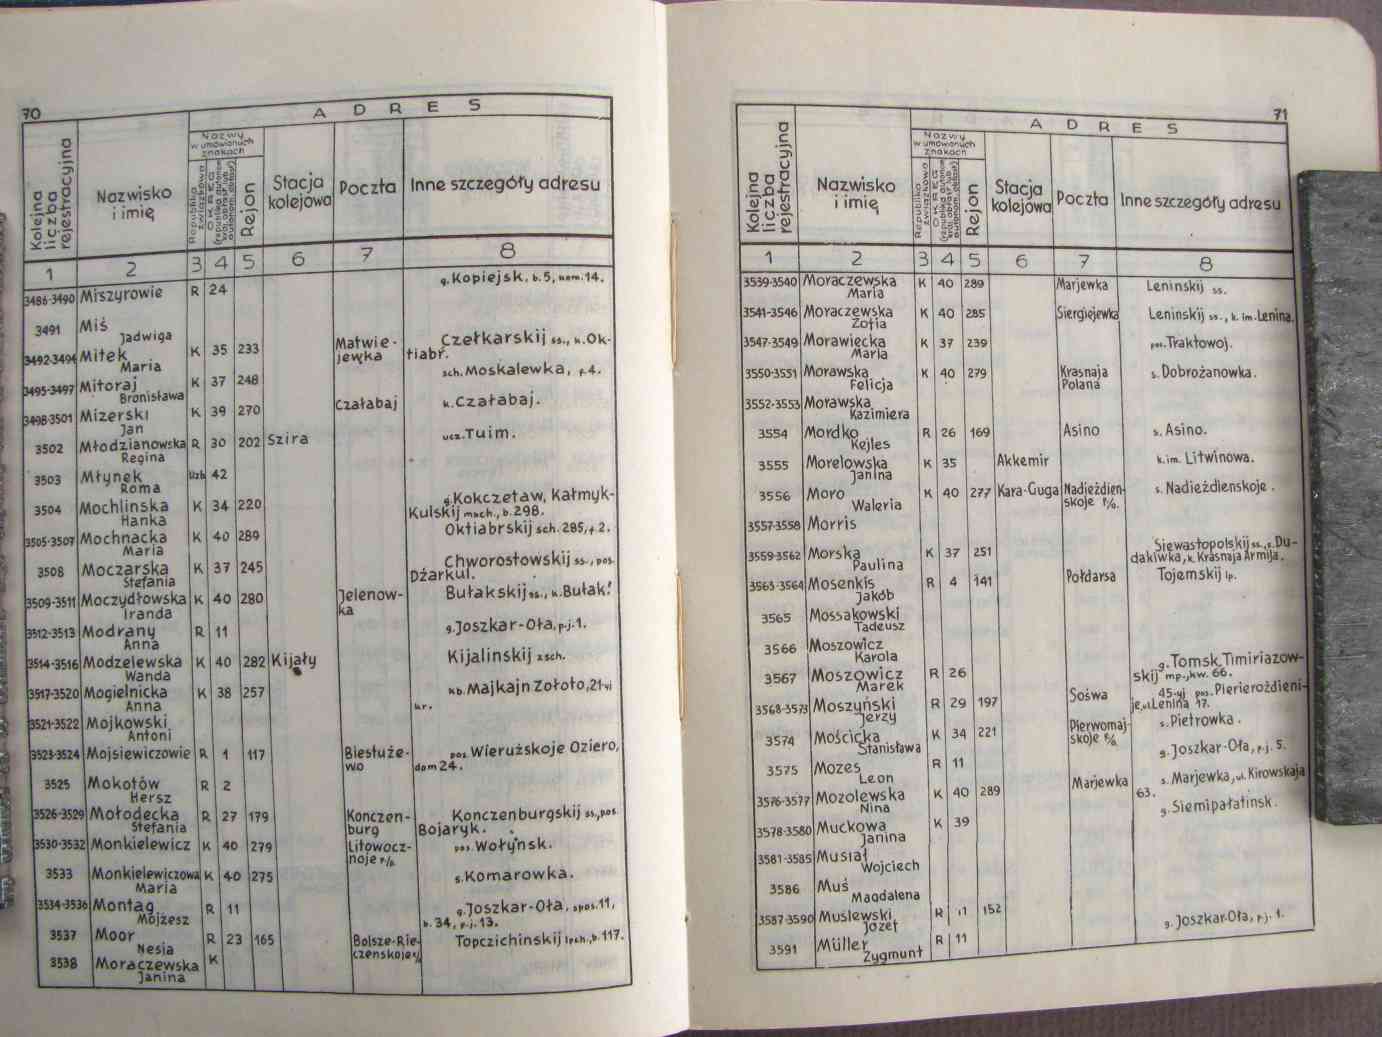 70
A D R E S
Kolejna liczba rejestracyjna
Nazwisko i imię
Nazwy w umówionych znakach
Republika związkowa
OKRĘG
Rejon
Stacja kolejowa
Poczta
Inne szczegóły adresu
1 2 3 4 5 6 7 8
3486-3490 Miszyrowie R 24 g.Kopiejsk, b.5, nom.14.
3491 Miś
Jadwiga
3492-3494 Mitek K 35 233 Matwie- Czełkarskij ss., k.Ok-
Maria jewka tiabr.
3495-3497 Mitoraj K 37 248 sch.Moskalewka, f.4.
Bronisława
3498-3501 Mizerski K 39 270 Czałabaj k.Czałabaj.
Jan
3502 Młodzianowska R 30 202 Szira ucz.Tuim.
Regina
3503 Młynek Uzb 42
Roma
3504 Mochlinska K 34 220 g.Kokczetaw, Kałmyk-
Hanka Kulskij mach., b.298.
3505-3507 Mochnacka K 40 289 Oktiabrskij sch.285, f.2.
Maria
3508 Moczarska K 37 245 Chworostowskij ss., pos.
Stefania Dżarkul.
3509-3511 Moczydłowska K 40 280 Jelenow- Bułakskij ss., k.Bułak.
Iranda ka
3512-3513 Modrany R 11 g.Joszkar-Oła, p.j.1.
Anna
3514-3516 Modzelewska K 40 282 Kijały Kijalinskij zsch.
Wanda
3517-3520 Mogielnicka K 38 257 kb.Majkajn Zołoto, 21-yj
Anna kr.
3521-3522 Mojkowski
Antoni
3523-3524 Mojsiewiczowie R 1 117 Biestuże- pos.Wierużskoje Oziero,
wo dom 24.
3525 Mokotów R 2
Hersz
3526-3529 Mołodecka R 27 179 Konczen- Konczenburgskij ss., pos.
Stefania burg Bojaryk.
3530-3532 Monkielewicz K 40 279 Litowocz- pos.Wołynsk.
noje r/p.
3533 Monkielewiczowa K 40 275 s.Komarowka.
Maria
3534-3536 Montag R 11 g.Joszkar-Oła, spos.11,
Mojżesz b.34, p.j.13.
3537 Moor R 23 165 Bolsze-Rie- Topczichinskij lpch., b.117.
Nesia czenskoje
3538 Moraczewska K
Janina
71
A D R E S
Kolejna liczba rejestracyjna
Nazwisko i imię
Nazwy w umówionych znakach
Republika związkowa
OKRĘG
Rejon
Stacja kolejowa
Poczta
Inne szczegóły adresu
1 2 3 4 5 6 7 8
3539-3540 Moraczewska K 40 289 Marjewka Leninskij ss.
Maria
3541-3546 Moraczewska K 40 285 Siergiejewka Leninskij ss., k. im. Lenina.
Zofia
3547-3549 Morawiecka K 37 239 pos.Traktowoj.
Maria
3550-3551 Morawska K 40 279 Krasnaja s.Dobrożanowka.
Felicja Polana
3552-3553 Morawska
Kazimiera
3554 Mordko R 26 169 Asino s.Asino.
Kejles
3555 Morelowska K 35 Akkemir k.im. Litwinowa.
Janina
3556 Moro K 40 277 Kara-Guga Nadieżdien- s.Nadieżdienskoje.
Waleria skoje r/a.
3557-3558 Morris
3559-3562 Morska K 37 251 Siewastopolskij ss., s.Du-
Paulina dakiwka, k.Krasnaja Armija.
3563-3564 Mosenkis R 4 141 Połdarsa Tojemskij lp.
Jakób
3565 Mossakowski
Tadeusz
3566 Moszowicz
Karola
3567 Moszowicz R 26 g.Tomsk, Timiriazow-
Marek skij mp., kw. 66.
3568-3573 Moszyński R 29 197 Sośwa 45-yj pos.Pierierożdieni-
Jerzy je, ul.Lenina 17.
3574 Mościcka K 34 221 Pierwomaj- s.Pietrowka.
Stanisława skoje r/a
3575 Mozes R 11 g.Joszkar-Oła, p.j. 5.
Leon
3576-3577 Mozolewska K 40 289 Marjewka s.Marjewka, ul. Kirowskaja
Nina 63.
3578-3580 Muckowa K 39 g.Siemipałatinsk.
Janina
3581-3585 Musiał
Wojciech
3586 Muś
Magdalena
3587-3590 Muślewski R 11 152
Józef
3591 Müller R 11 g.Joszkar-Oła, p.j. 1.
Zygmunt